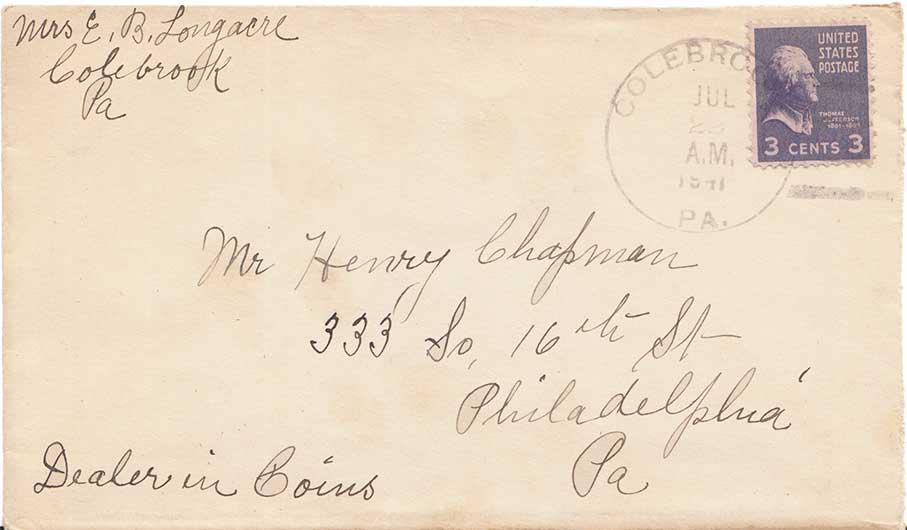 Mrs E. B. Longacre
Colebrook
Pa
COLEBRO
JUL
A.M.
1941
PA.
UNITED
STATES
POSTAGE
THOMAS
JEFFERSON
1801-1809
3 CENTS 3
Mr Henry Chapman
333 So, 16th St
Philadelphia
Pa
Dealer in Coins